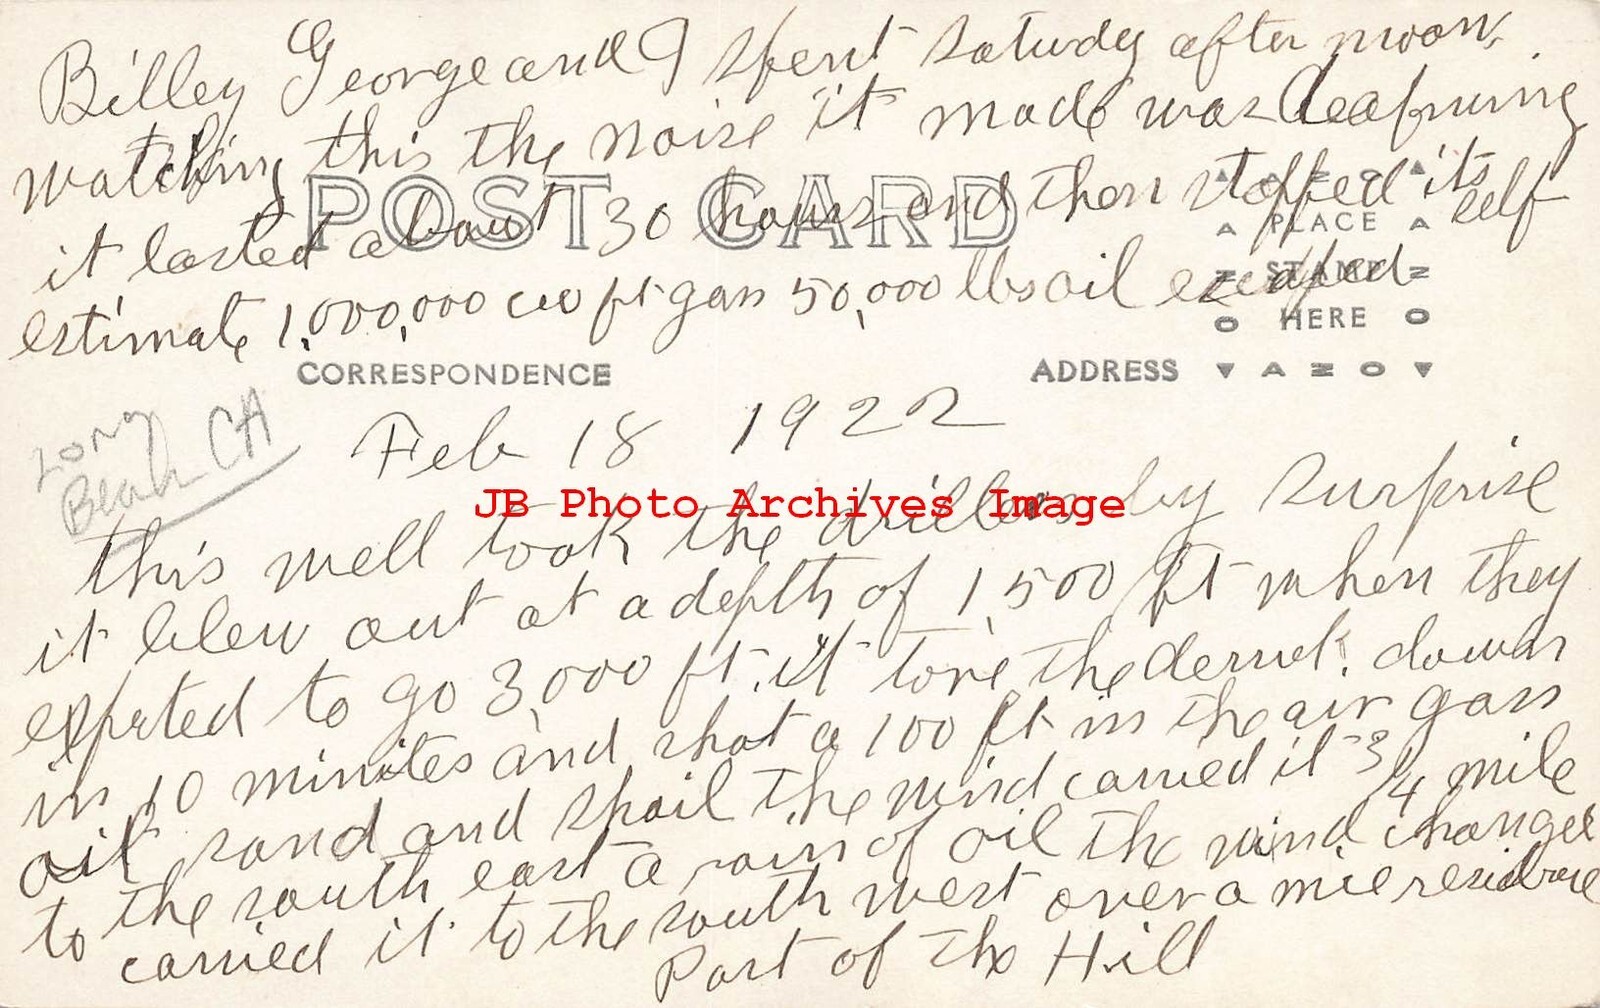 Billey George and I spent Saturdey after noon.
watching this the noise it made was deafning
it lasted about 30 hours and then stopped its self
estimate 1,000,000 cu ft gass 50,000 lbs oil escaped
POST CARD
AZO
PLACE
STAMP
HERE
AZO
CORRESPONDENCE
ADDRESS
Long
Beach CA
Feb 18 1922
JB Photo Archives Image
this well took the drillers by surprise
it blew out at a depth of 1,500 ft when they
expected to go 3,000 ft. it tore the derrick down
in 10 minites and shot a 100 ft in the air gass
oil sand and shail the wind carried it 3/4 mile
to the south east a rain of oil the wind changed
carried it to the south west over a nice residence
Part of the Hill